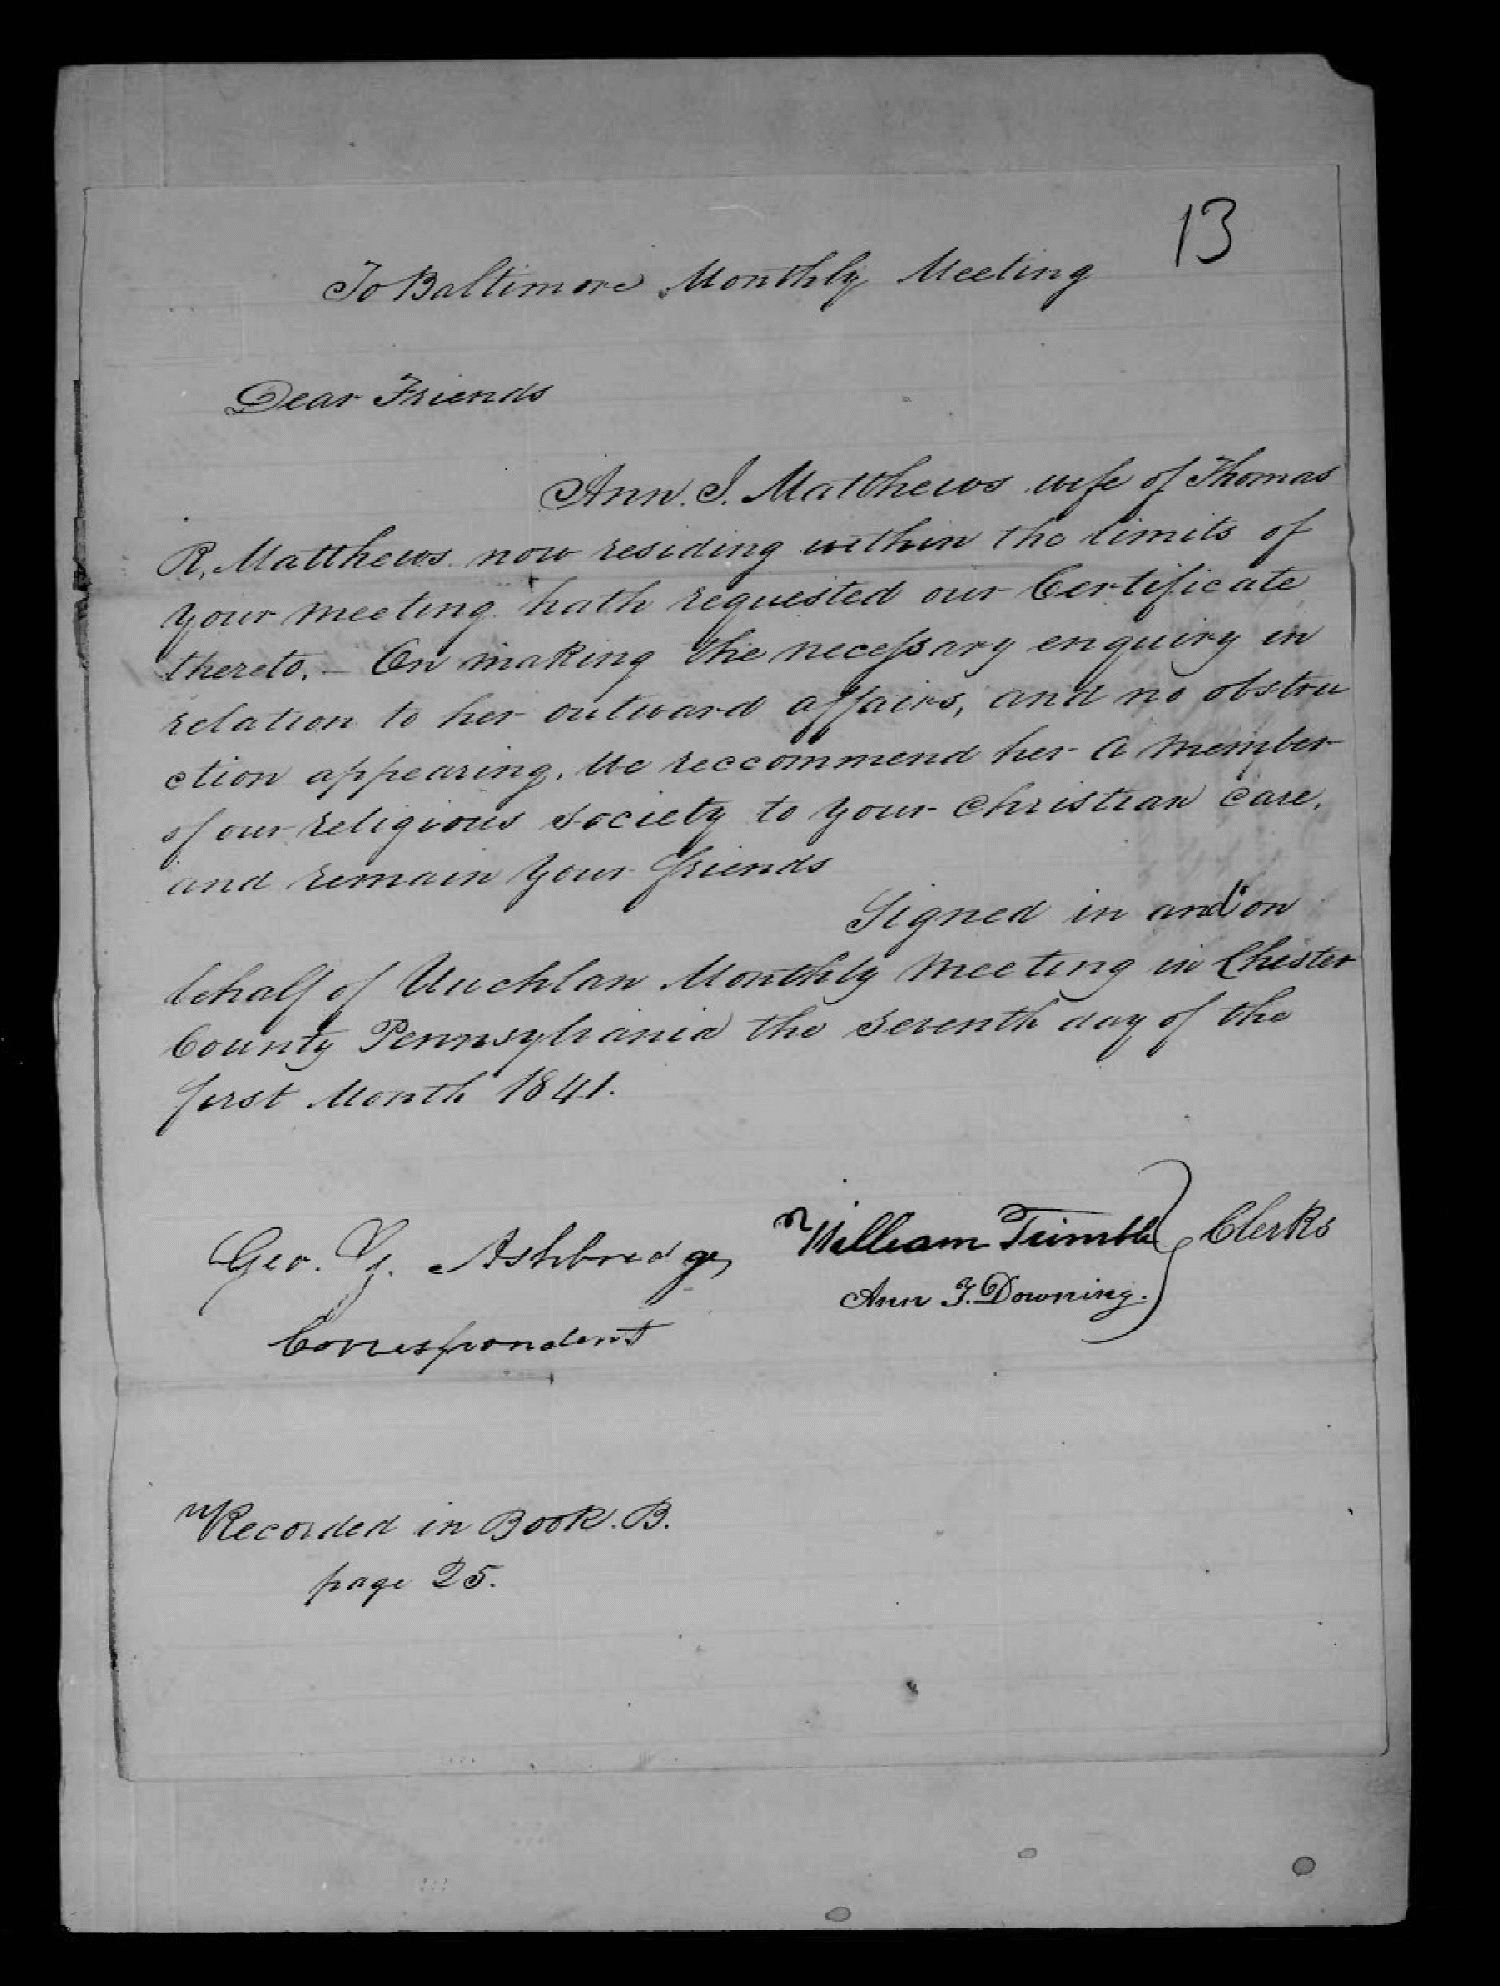 13
To Baltimore Monthly Meeting
Dear Friends
Ann. J. Matthews wife of Thomas
R. Matthews now residing within the limits of
your meeting hath requested our Certificate
thereto. — On making the necessary enquiry in
relation to her outward affairs, and no obstru
ction appearing, We reccommend her a member
of our religious society to your christian care,
and remain your friends
Signed in and on
behalf of Uwchlan Monthly Meeting in Chester
County Pennsylvania the seventh day of the
first Month 1841.
William Trimble Clerks
Geo. G. Ashbridge
Ann T. Downing.
Correspondent
Recorded in Book. B.
page 25.